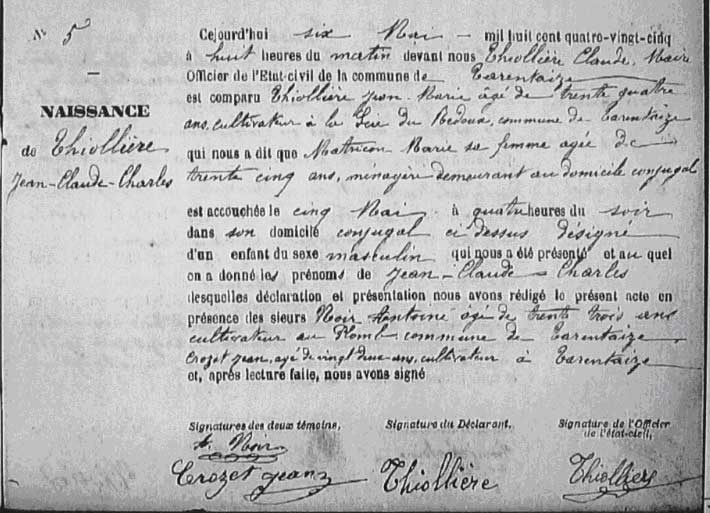 N° 5
NAISSANCE
de Thiollière
Jean-Claude-Charles
Cejourd'hui six Mai mil huit cent quatre-vingt-cinq
à huit heures du matin devant nous Thiollière Claude, Maire
Officier de l'Etat-civil de la commune de Tarentaize
est comparu Thiollière Jean-Marie âgé de trente quatre
ans, cultivateur à la Scie du Bedoux, commune de Tarentaize
qui nous a dit que Matricon Marie sa femme agée de
trente cinq ans, ménagère demeurant au domicile conjugal
est accouchée le cinq Mai à quatre heures du soir
dans son domicile conjugal ci dessus désigné
d'un enfant du sexe masculin qui nous a été présenté et au quel
on a donné les prénoms de Jean-Claude-Charles
desquelles déclaration et présentation nous avons rédigé le présent acte en
présence des sieurs Noir Antoine âgé de trente trois ans
cultivateur au Plomb commune de Tarentaize,
Crozet Jean, agé de vingt deux ans, cultivateur à Tarentaize
et, après lecture faite, nous avons signé
Signatures des deux témoins, Signature du Déclarant, Signature de l'Officier
de l'état-civil,
A. Noir
Crozet jean Thiollière Thiolliere